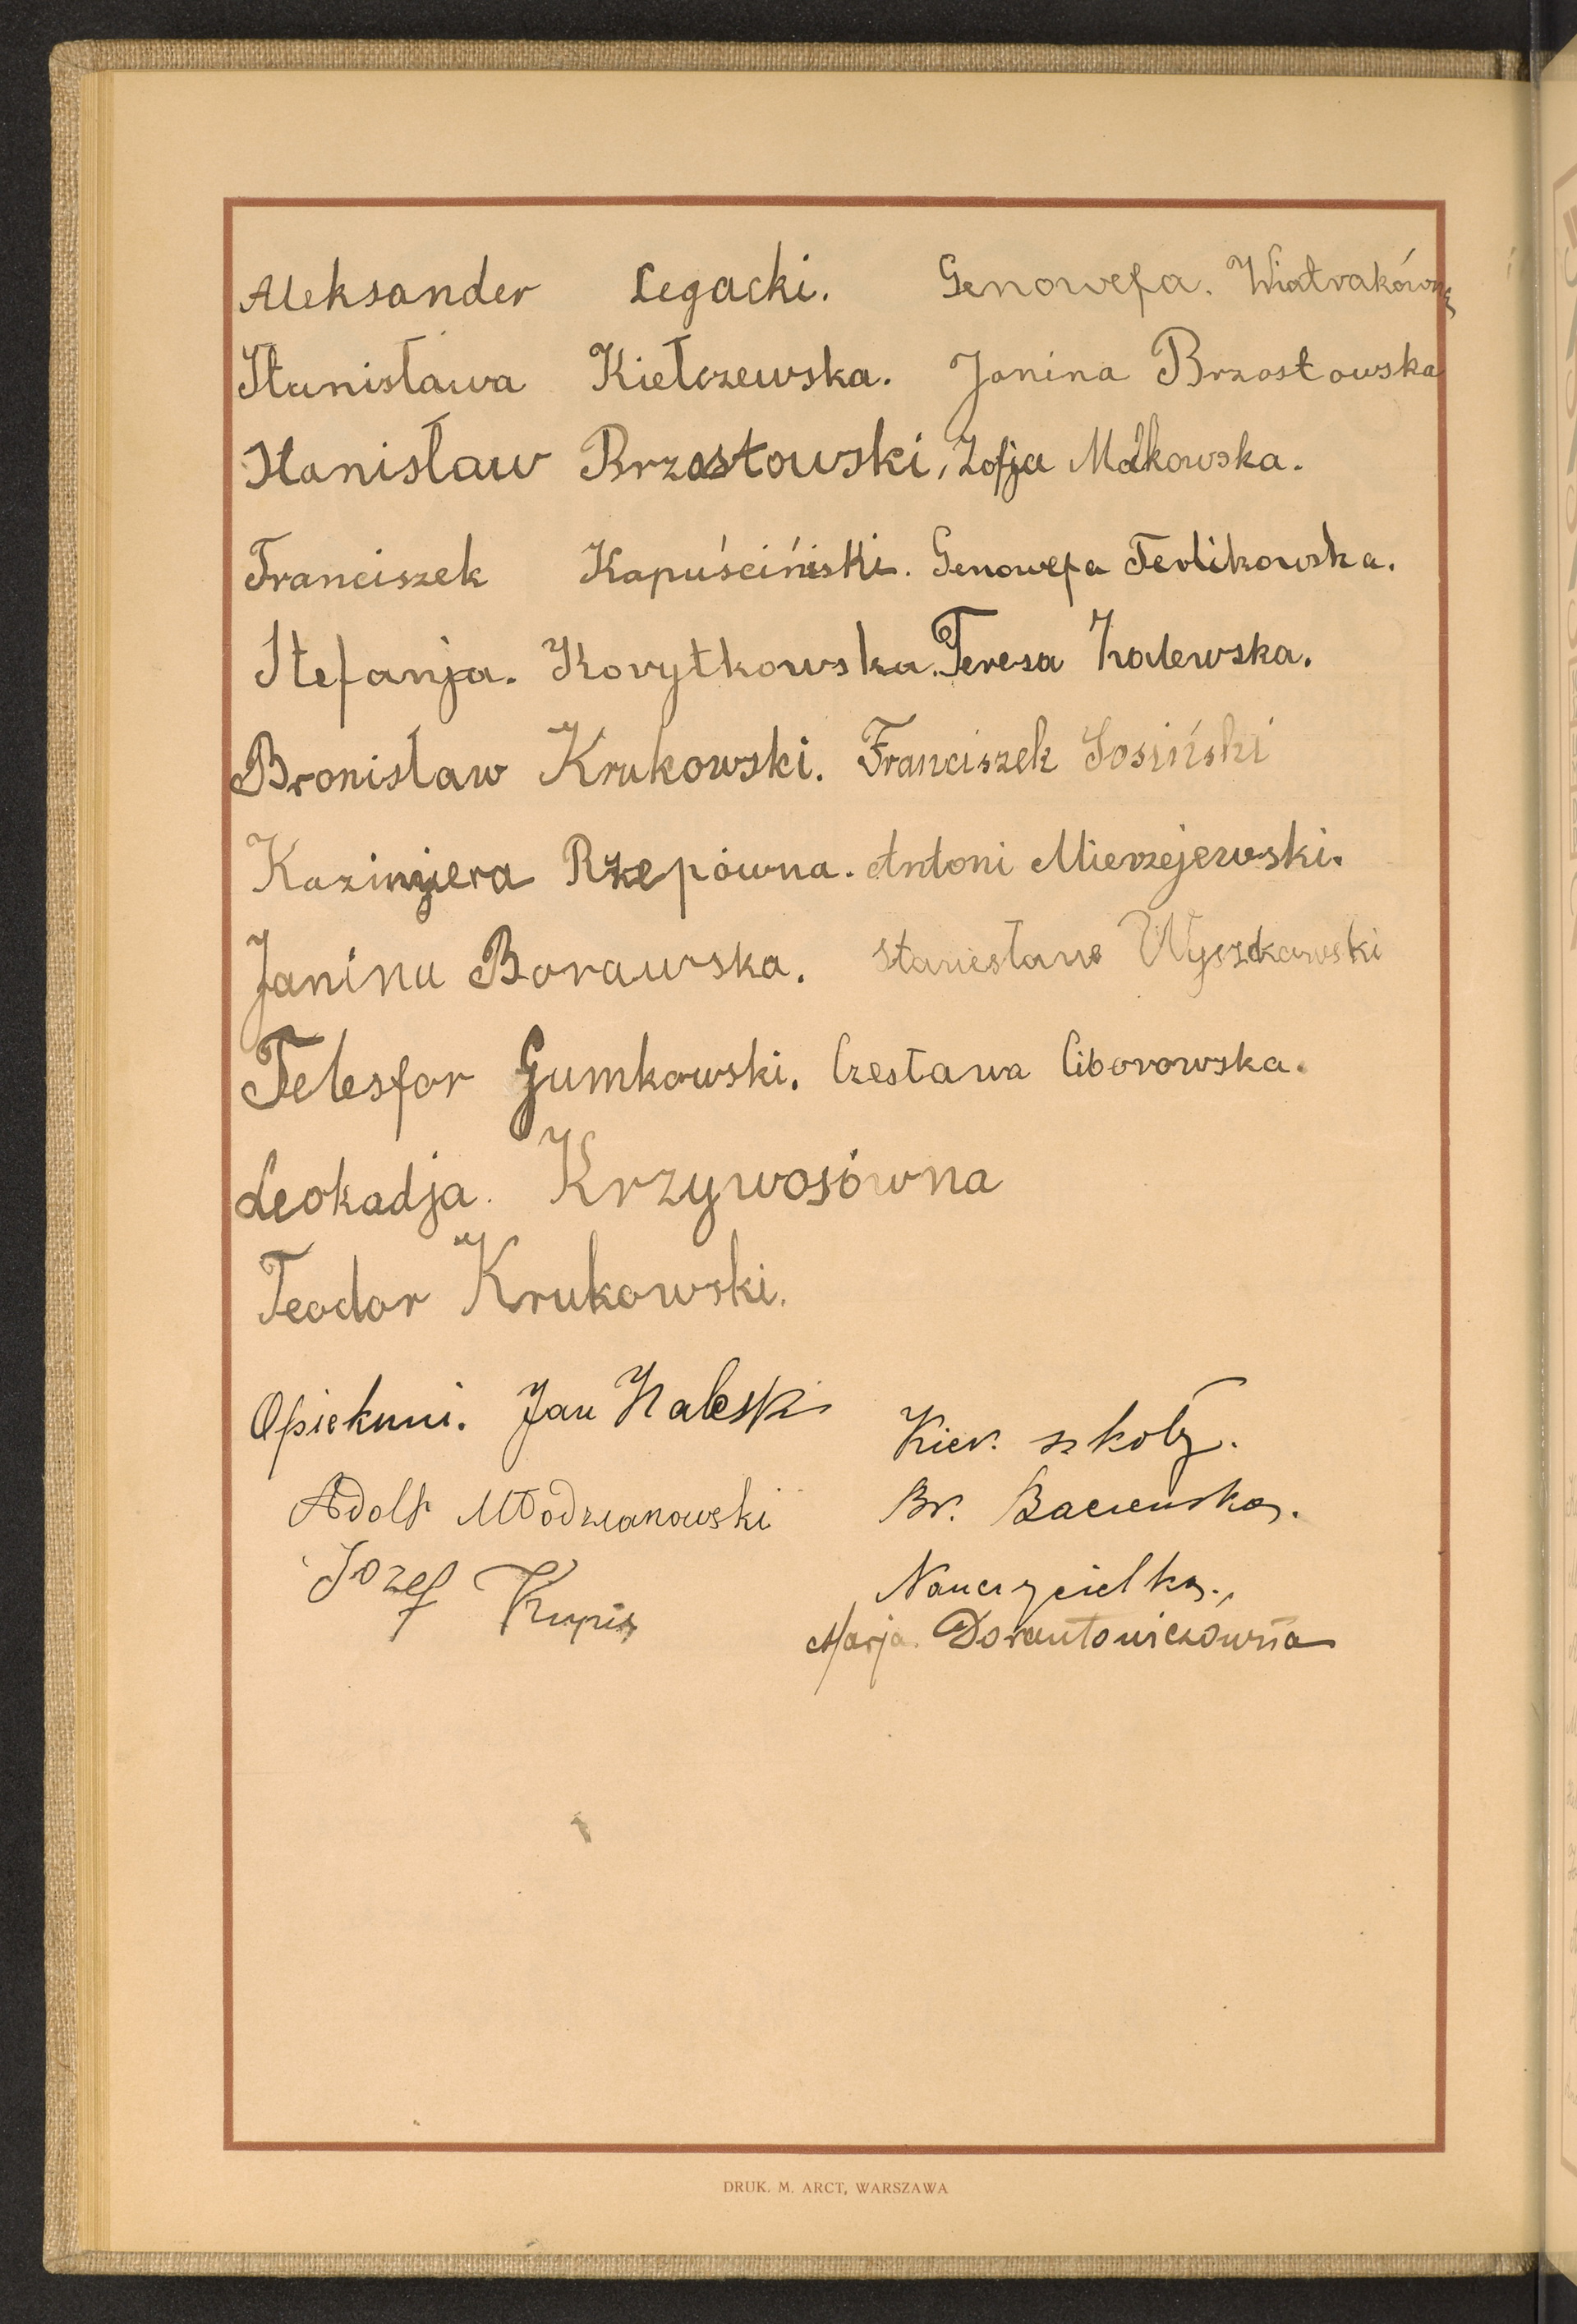 Aleksander Legacki. Genowefa. Wiatrakówna
Stanisława Kiełczewska. Janina Brzostowska
Stanisław Brzostowski, Zofja Małkowska.
Franciszek Kapuściński. Genowefa Terlikowska.
Stefanja. Korytkowska. Teresa Zalewska.
Bronisław Krukowski. Franciszek Sosiński
Kazimjera Rzepówna. Antoni Mierzejewski.
Janina Borawska. Stanisław Wyszkowski
Telesfor Gumkowski. Czesława Ciborowska.
Leokadja. Krzywosówna
Teodor Krukowski.
Opiekuni. Jan Zaleski
Kier. szkoły.
Adolf Młodzianowski
Br. Baczewska.
Józef Krupis
Nauczycielka.
Marja Dorantowiczówna
DRUK. M. ARCT, WARSZAWA